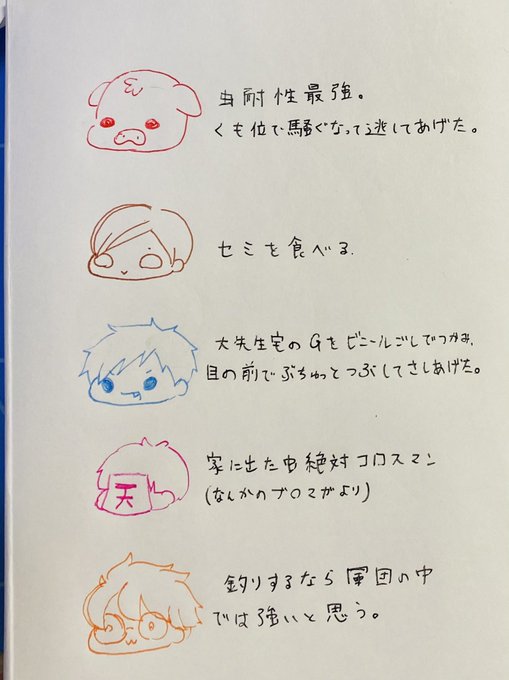 虫耐性最強。
くも位で騒ぐなって逃してあげた。
セミを食べる.
大先生宅のGをビニールごしでつかみ、
目の前でぶちゅっとつぶしてさしあげた。
家に出た虫絶対コロスマン
(なんかのブロマガより)
天
釣りするなら軍団の中
では強いと思う。